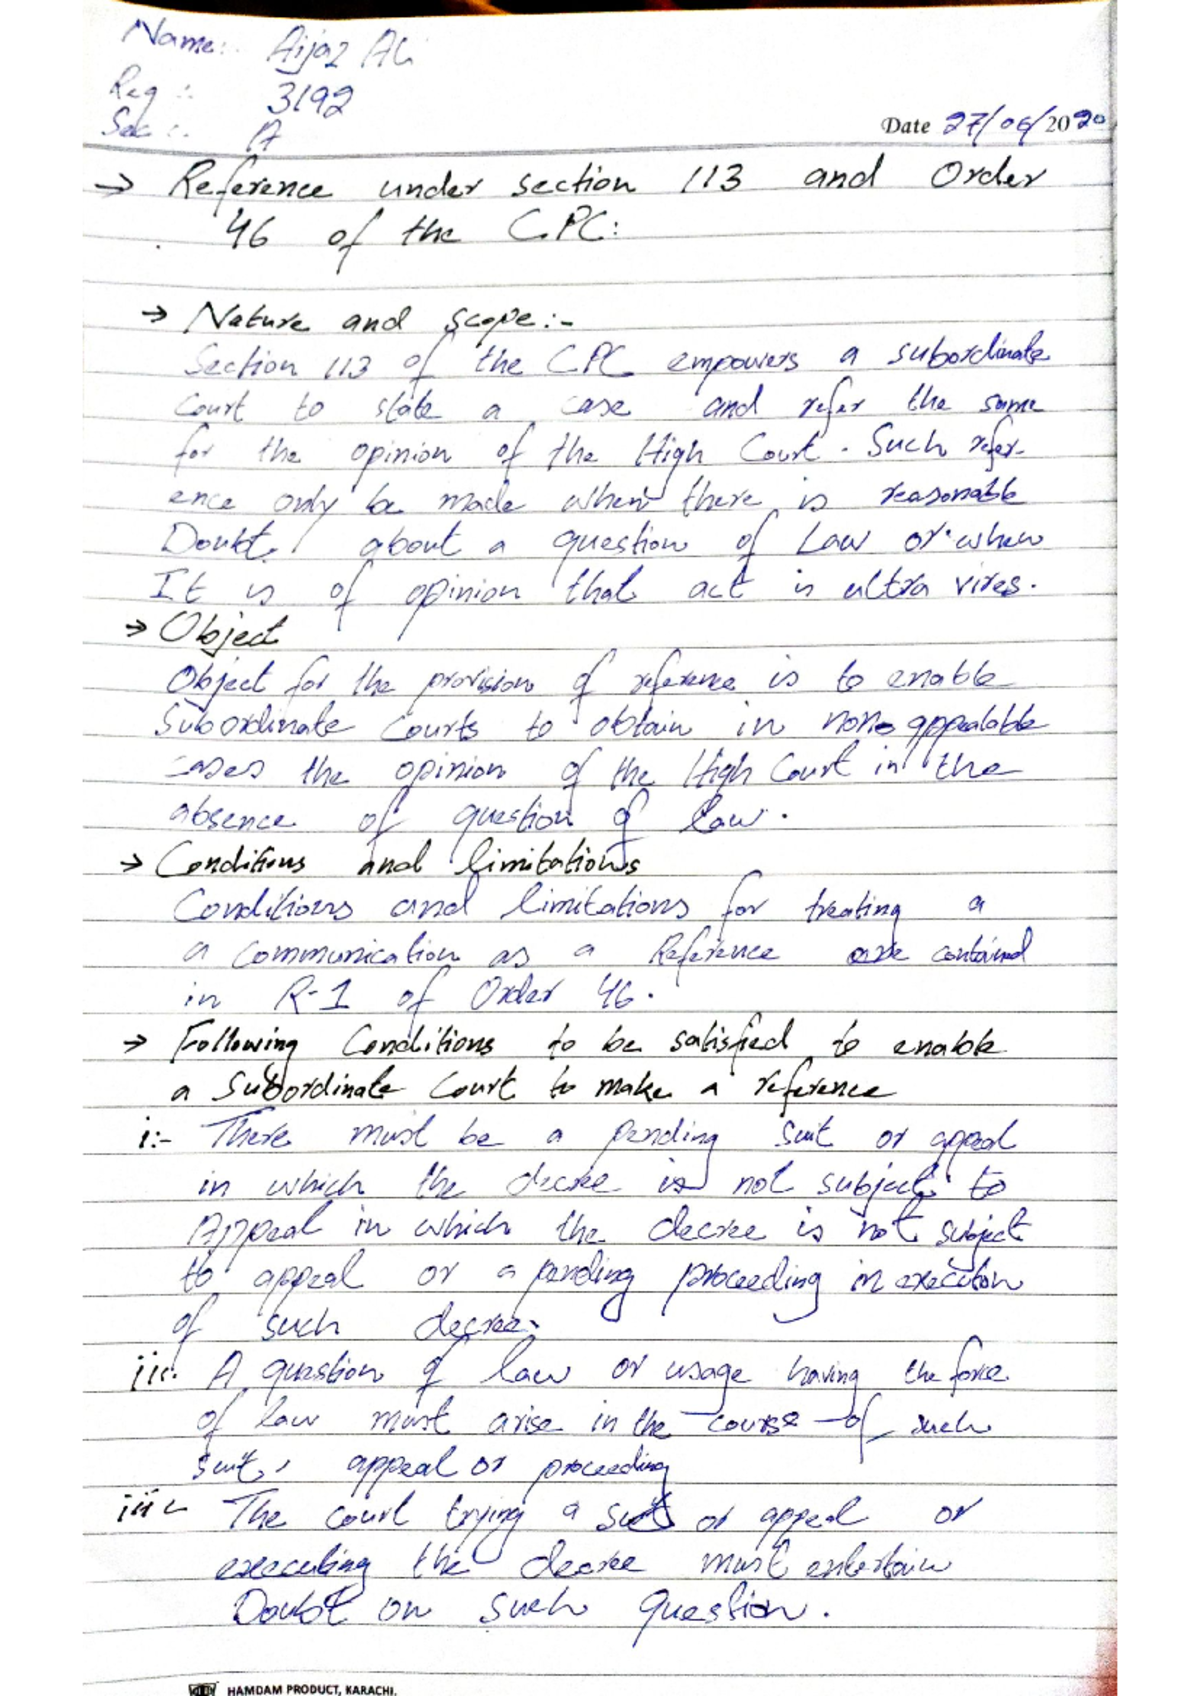 Name:. Aijaz Ali
Reg :. 3192
Sec :. A
Date 27/06/2020
→ Reference under section 113 and Order
46 of the C.P.C:
→ Nature and scope:-
Section 113 of the CPC empowers a subordinate
Court to state a case and refer the same
for the opinion of the High Court. Such refer-
ence only be made when there is reasonable
Doubt about a question of Law or when
It is of opinion that act is ultra vires.
→ Object
Object for the provision of reference is to enable
Subordinate Courts to obtain in non-appealable
cases the opinion of the High Court in the
absence of question of law.
→ Conditions and limitations
Conditions and limitations for treating a
a communication as a Reference are contained
in R-1 of Order 46.
→ Following Conditions to be satisfied to enable
a Subordinate Court to make a reference
i:- There must be a pending suit or appeal
in which the decree is not subject to
Appeal in which the decree is not subject
to appeal or a pending proceeding in execution
of such decree.
ii:. A question of law or usage having the force
of law must arise in the course of such
suit, appeal or proceeding
iii:- The court trying a suit or appeal or
executing the decree must entertain
Doubt on such question.
HAMDAM PRODUCT, KARACHI.